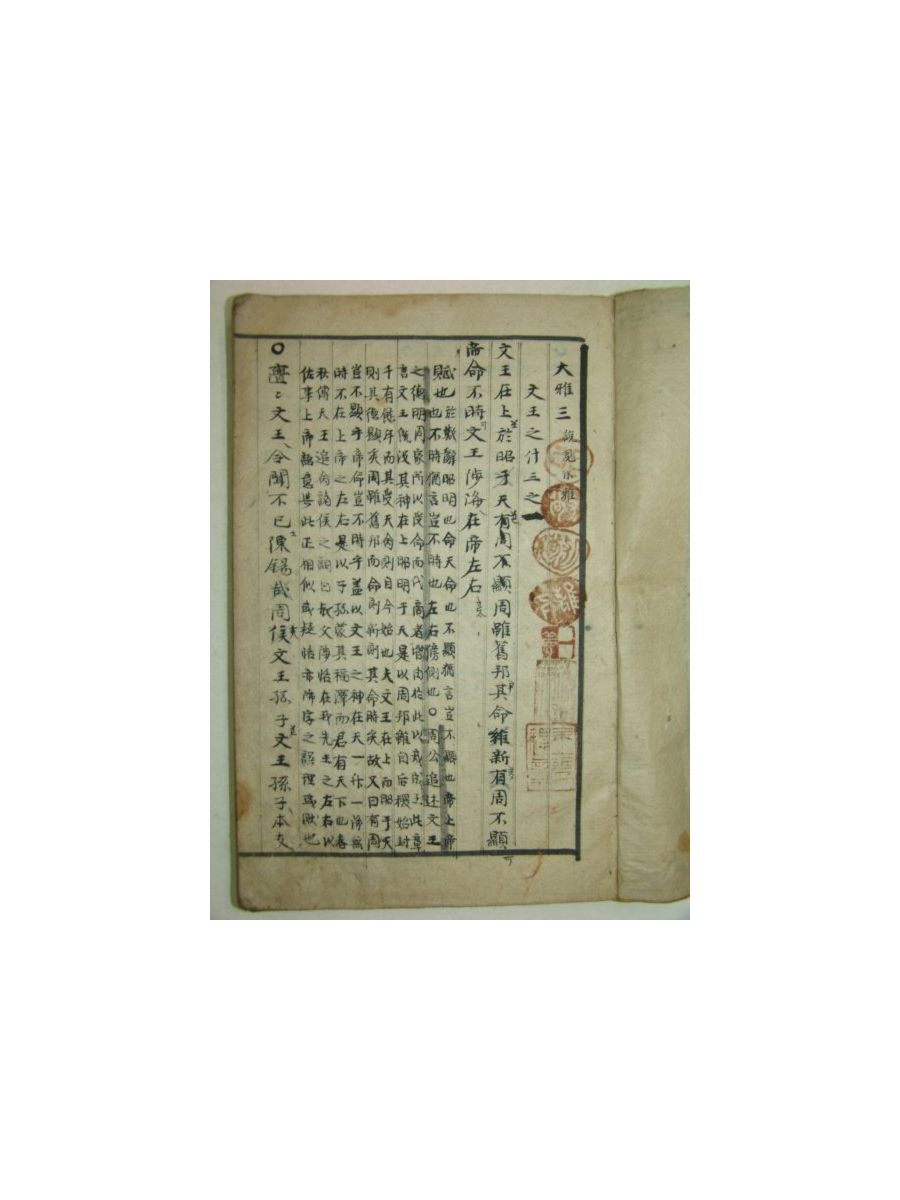 大雅三 說見小雅
文王之什三之一
文王在上於昭于天有周不顯周雖舊邦其命維新有周不顯
帝命不時文王陟降在帝左右
賦也於歎辭昭明也命天命也不顯猶言豈不顯也帝上帝
也不時猶言豈不時也左右旁側也○周公追述文王
之德明周家所以受命而代商者皆由於此以戒成王此章
言文王旣沒其神在上昭明于天是以周邦雖自后稷始封
千有餘年而其受天命則自今始也夫文王在上而昭于天
則其德顯矣周雖舊邦而命則新則其命時矣故又曰有周
豈不顯乎帝命豈不時乎盖以文王之神在天一升一降無
時不在上帝之左右是以子孫蒙其福澤而君有天下也春
秋傳天王追命諸侯之詞曰叔父陟恪在我先王之左右以
佐事上帝語意與此正相似或疑恪亦降字之誤理或然也
○亹〻文王令聞不已陳錫哉周侯文王孫子文王孫子本支